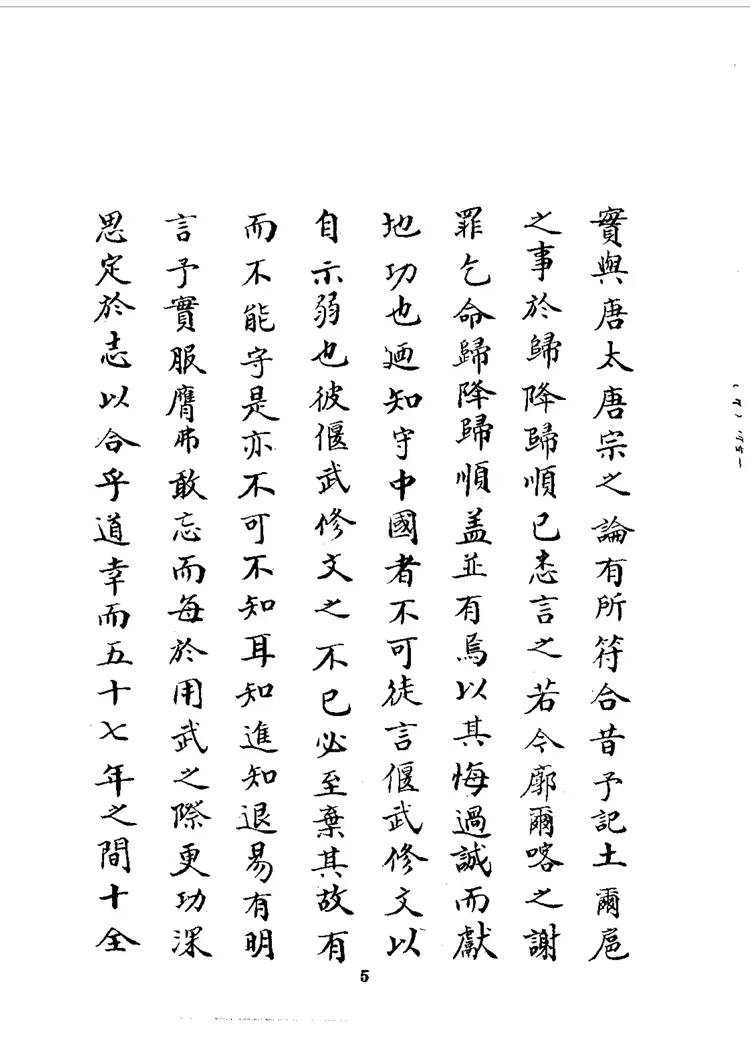 實與唐太唐宗之論有所符合昔予記土爾扈
之事於歸降歸順已悉言之若今廓爾喀之謝
罪乞命歸降歸順盖並有焉以其悔過誠而獻
地切也廼知守中國者不可徒言偃武修文以
自示弱也彼偃武修文之不已必至棄其故有
而不能守是亦不可不知耳知進知退易有明
言予實服膺弗敢忘而每於用武之際更切深
思定於志以合乎道幸而五十七年之間十全
5